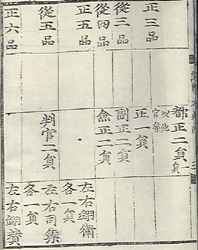 正三品
從三品
從四品
正五品
從五品
正六品
都正二員
以他
官兼
正一員
副正二員
僉正二員
判官二員
左右翊衛
各一員
左右司禦
各一員
左右翊贊